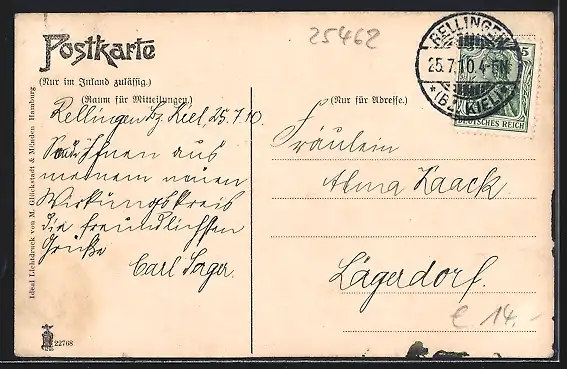 25462
Postkarte
(Nur im Inland zulässig.)
(Raum für Mitteilungen.)
(Nur für Adresse.)
RELLINGEN
25.7.10.4-5N
*(BZ. KIEL)*
5
DEUTSCHES REICH
Rellingen Bz. Kiel, 25.7.10.
Ihnen aus
meinem neuen
Wirkungskreis
die freundlichsten
Grüße
Carl Sager.
Fräulein
Alma Zaack
Lägerdorf.
€ 14.-
Ideal Lichtdruck von M. Glückstadt & Münden Hamburg
22768